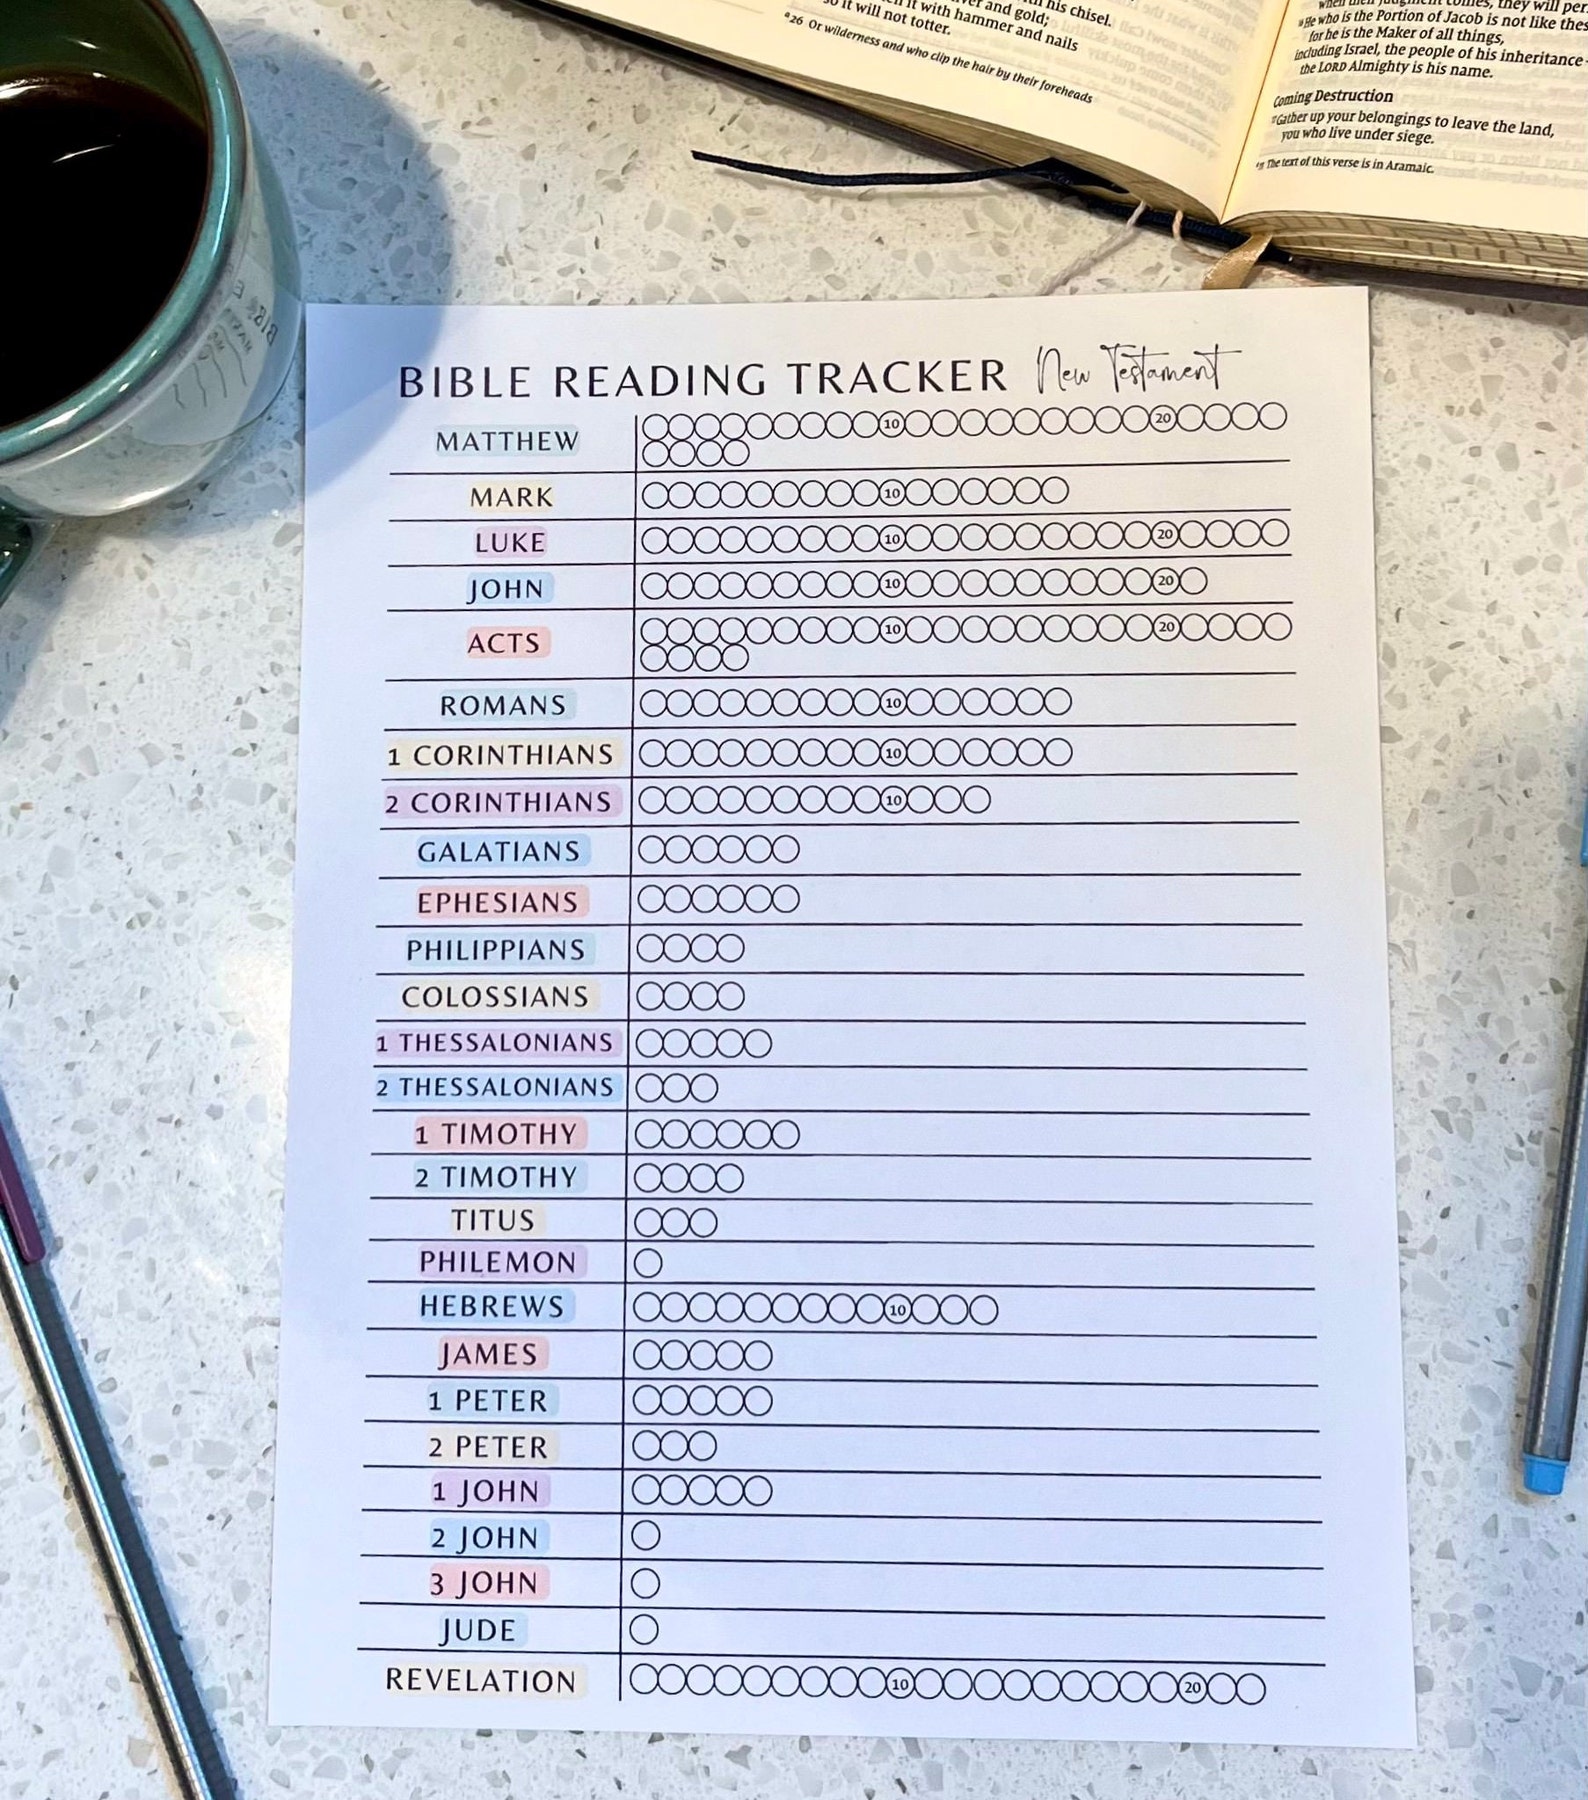 his chisel.
it with hammer and nails
it will not totter.
a26 Or wilderness and who clip the hair by their foreheads
He who is the Portion of Jacob is not like
for he is the Maker of all things,
including Israel, the people of his inheritance—
the LORD Almighty is his name.
Coming Destruction
17Gather up your belongings to leave the land,
you who live under siege.
a11 The text of this verse is in Aramaic.
BIBLE READING TRACKER New Testament
MATTHEW 10 20
MARK 10
LUKE 10 20
JOHN 10 20
ACTS 10 20
ROMANS 10
1 CORINTHIANS 10
2 CORINTHIANS 10
GALATIANS
EPHESIANS
PHILIPPIANS
COLOSSIANS
1 THESSALONIANS
2 THESSALONIANS
1 TIMOTHY
2 TIMOTHY
TITUS
PHILEMON
HEBREWS 10
JAMES
1 PETER
2 PETER
1 JOHN
2 JOHN
3 JOHN
JUDE
REVELATION 10 20